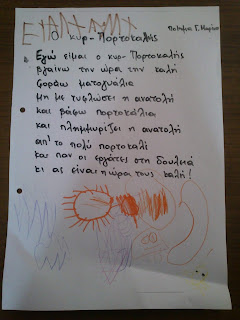 Ο κυρ-Πορτοκαλής
Ποίημα Γ. Μαρίνου
Εγώ είμαι ο κυρ-Πορτοκαλής
βγαίνω την ώρα την καλή
φοράω ματογυάλια
μη με τυφλώσει η ανατολή
και βάφω πορτοκάλια
και πλημμυρίζει η ανατολή
απ' το πολύ πορτοκαλί
και παν οι εργάτες στη δουλειά
κι ας είναι η ώρα τους καλή!